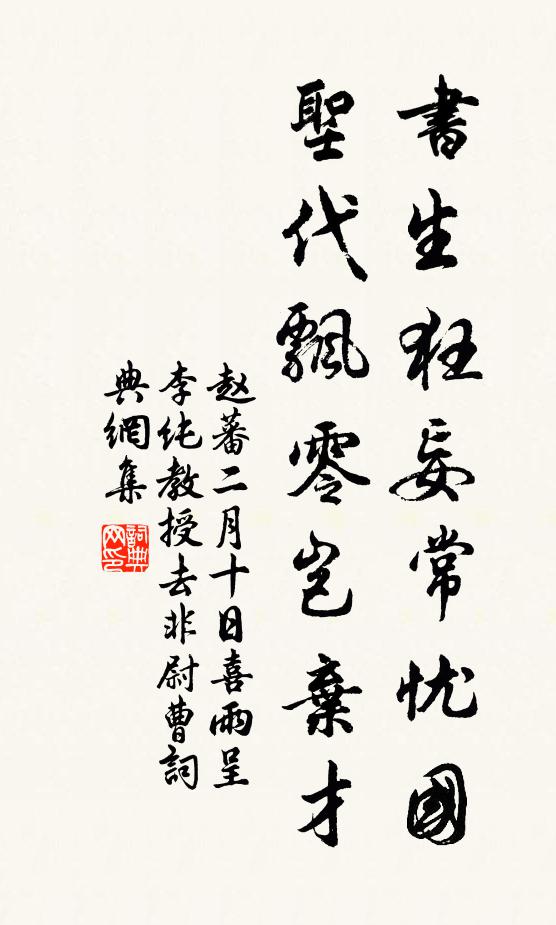 書生狂妄常忧國
聖代飄零岂棄才
赵蕃二月十日喜雨呈
李纯教授去非尉曹詞
典網集
詞典
网印